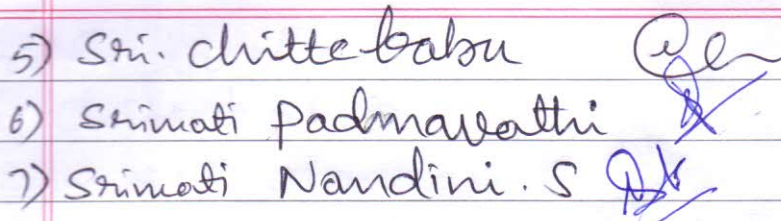 5) Sri. Chittebabu
6) Srimati Padmavathi
7) Srimati Nandini. S